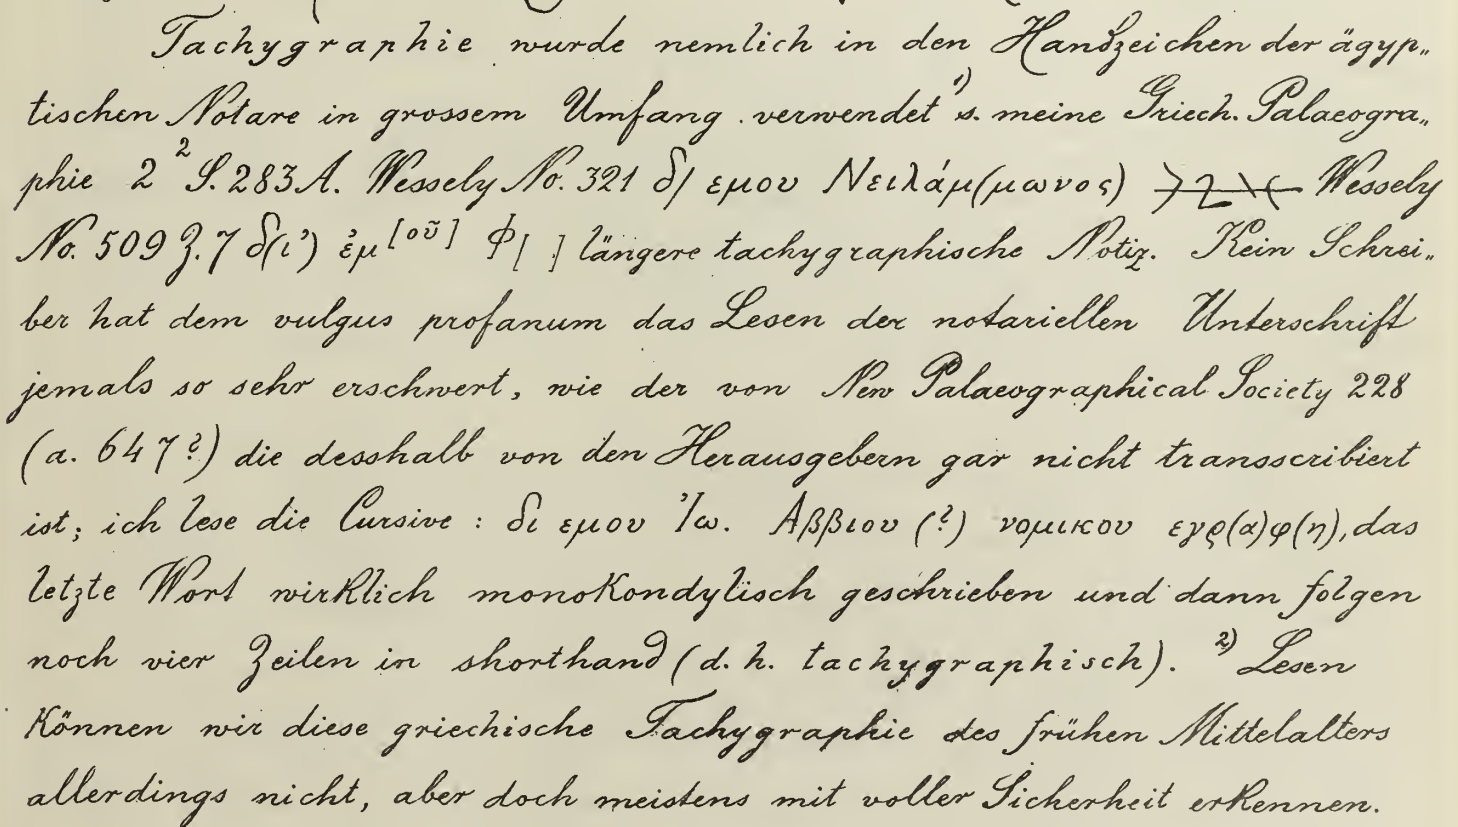 Tachygraphie wurde nemlich in den Handzeichen der ägyp„
tischen Notare in grossem Umfang verwendet ¹) s. meine Griech. Palaeogra„
phie 2² S. 283 A. Wessely No. 321 δ/ εμου Νειλάμ(μωνος) Wessely
No. 509 Z. 7 δ(ι’) ἐμ[οῦ] Φ[ ] längere tachygraphische Notiz. Kein Schrei„
ber hat dem vulgus profanum das Lesen der notariellen Unterschrift
jemals so sehr erschwert, wie der von New Palaeographical Society 228
(a. 647?) die desshalb von den Herausgebern gar nicht transscribiert
ist; ich lese die Cursive : δι εμου Ἰω. Αββιου (?) νομικου εγρ(α)φ(η), das
letzte Wort wirklich monokondylisch geschrieben und dann folgen
noch vier Zeilen in shorthand (d. h. tachygraphisch). ²) Lesen
können wir diese griechische Tachygraphie des frühen Mittelalters
allerdings nicht, aber doch meistens mit voller Sicherheit erkennen.